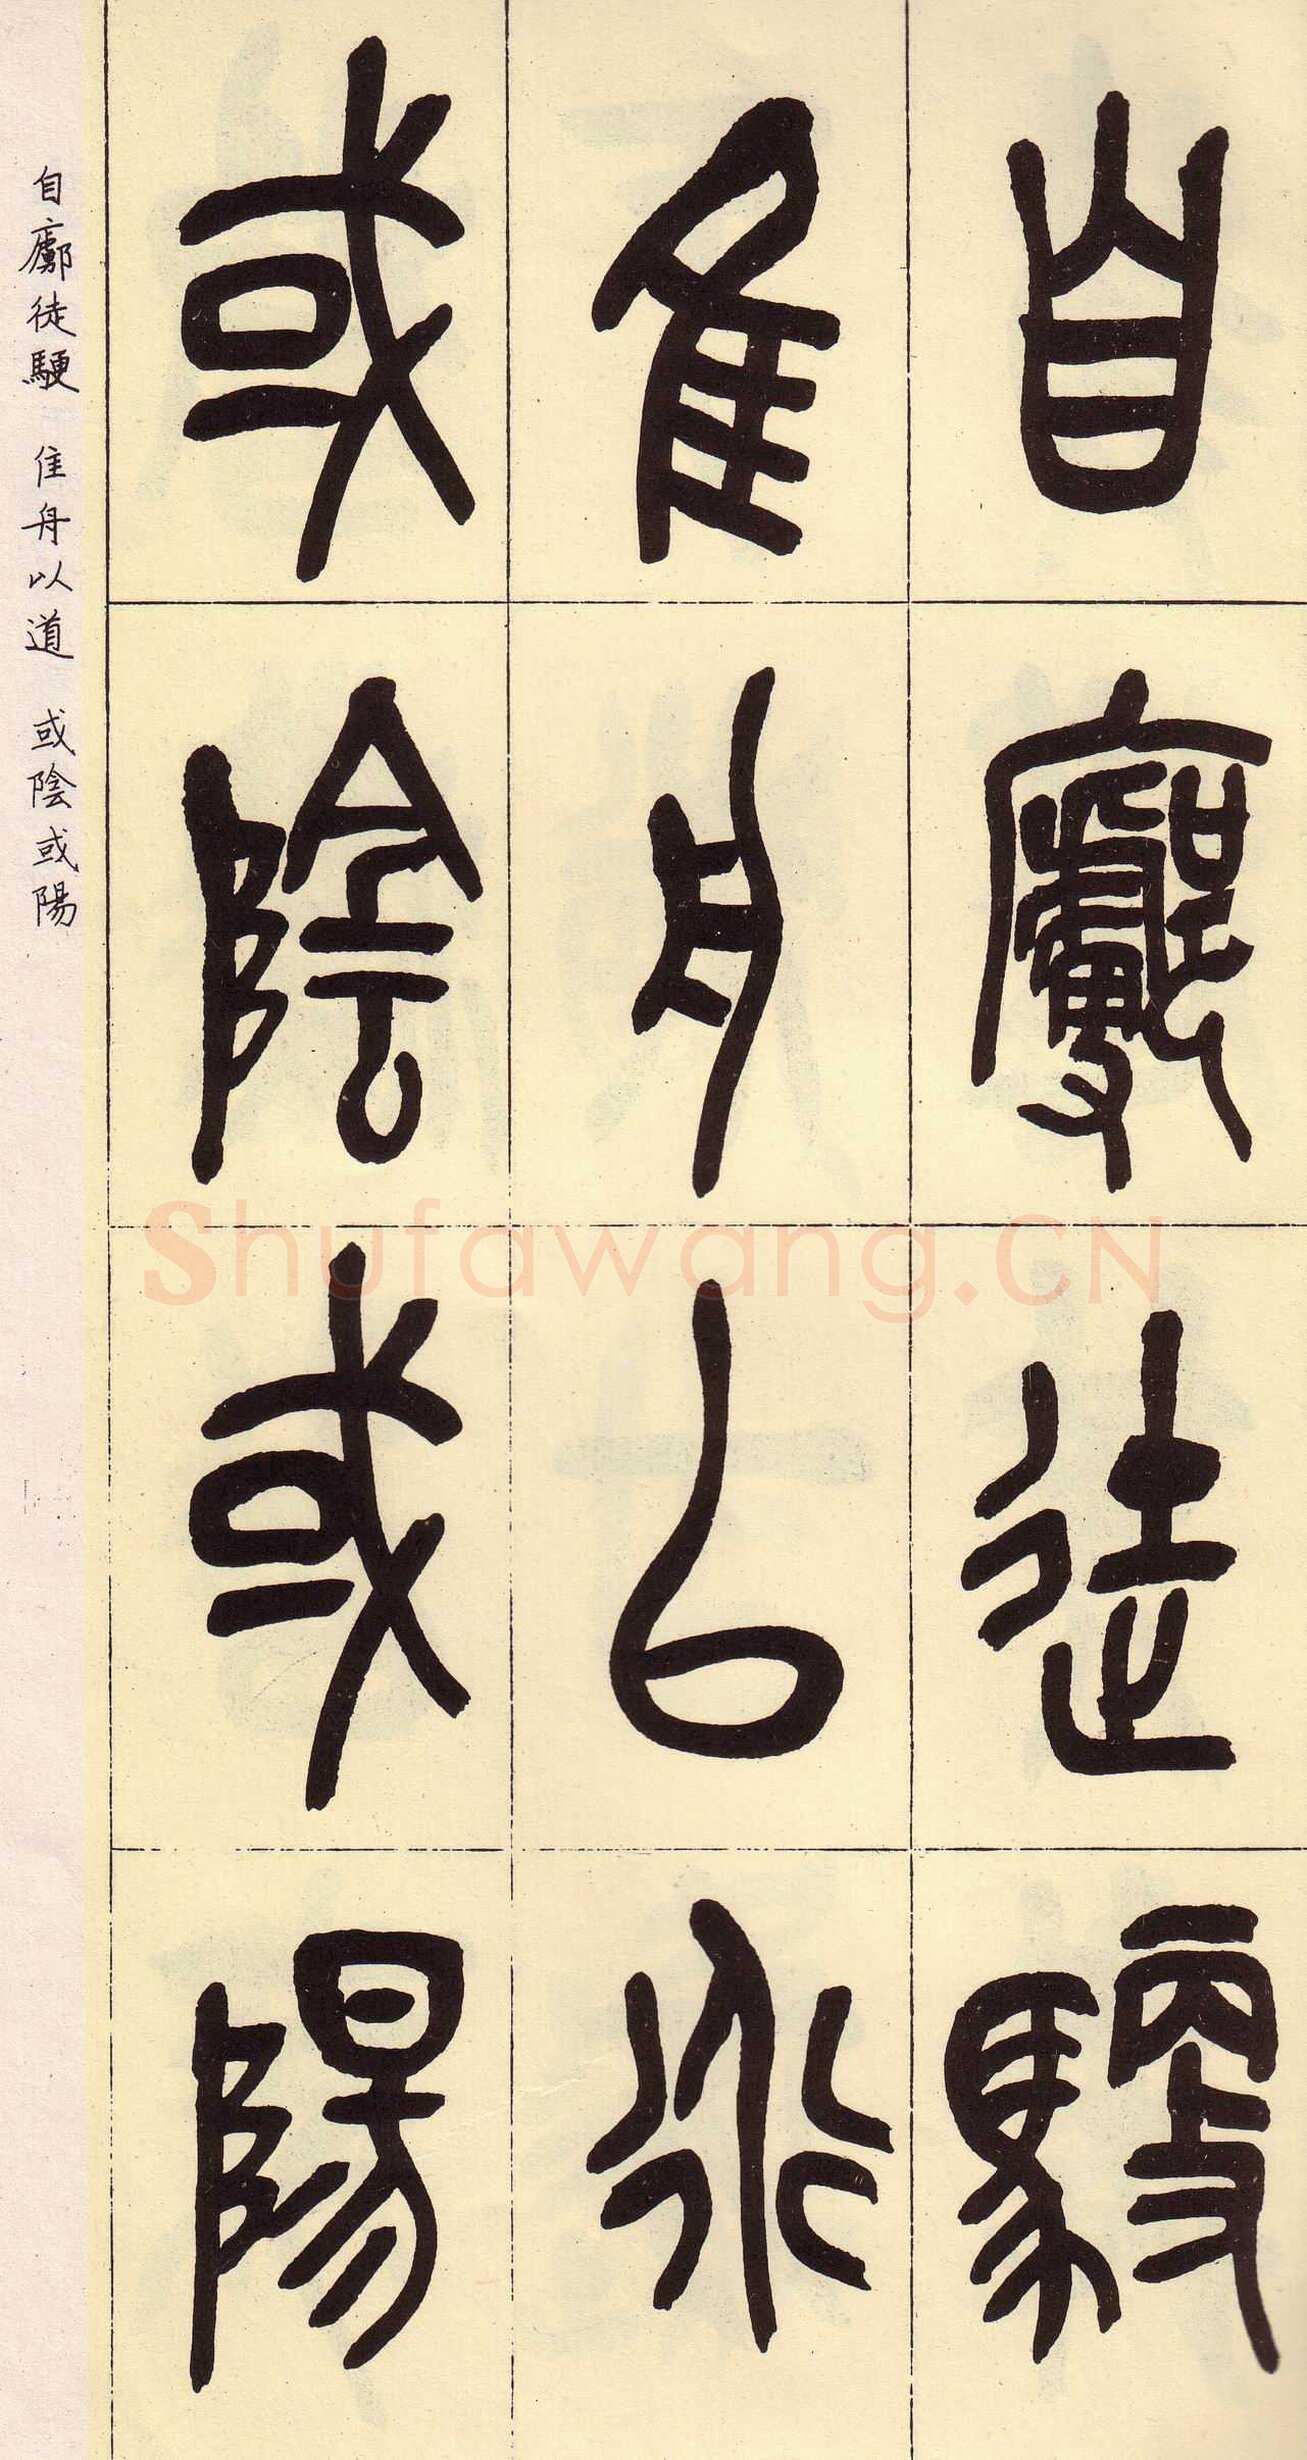 自廓徒驅
隹舟以道
或陰或陽
自廓徒驅 隹舟以道 或陰或陽
Shufawang.CN